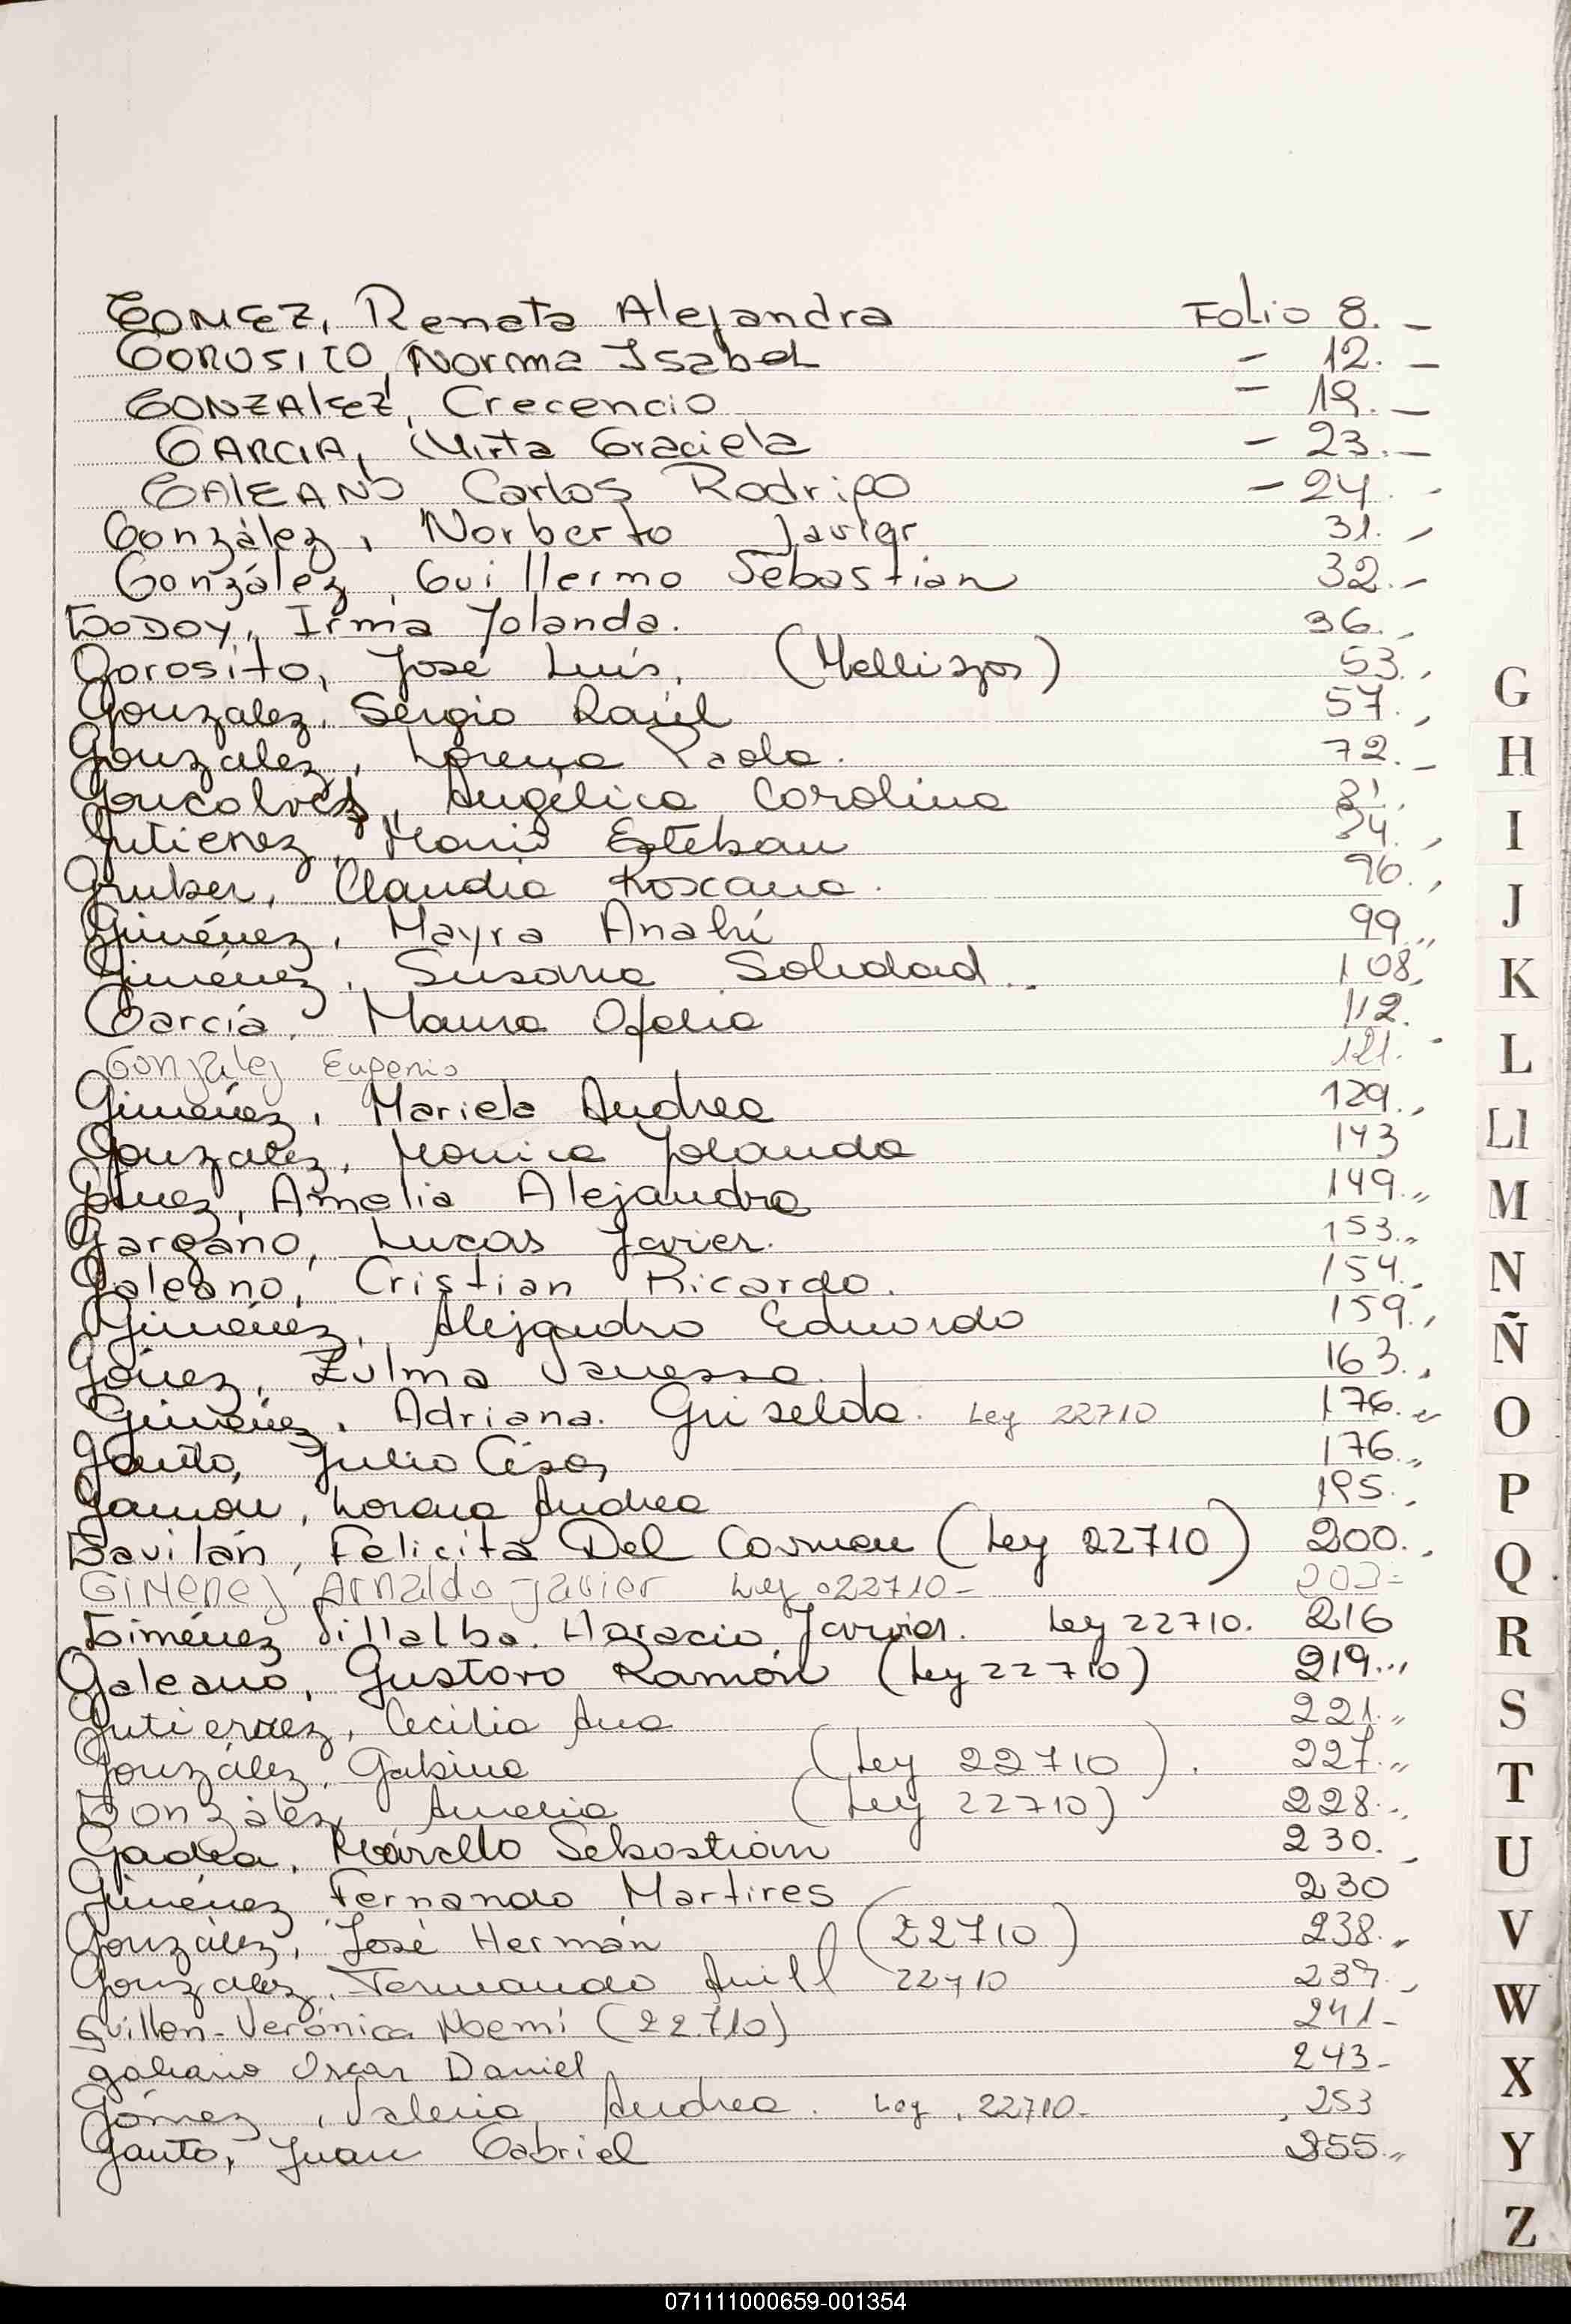 GOMEZ, Renata Alejandra Folio 8. -
GOROSITO, Norma Isabel - 12. -
GONZALEZ, Crecencio - 19. -
GARCIA, Mirta Graciela - 23. -
GALEANO Carlos Rodrigo - 24. -
González, Norberto Javier 31. -
González, Guillermo Sebastian 32. -
GODOY, Irma Yolanda. 36.,
Gorosito, José Luis, (Mellizos) 53.,
Gonzalez, Sergio Raúl 57.,
Gonzalez, Lorena Paola. 72. -
Goncalvez, Angélica Carolina 81.,
Gutierrez, Mario Esteban 94.,
Gruber, Claudia Roxana. 96.,
Giménez, Mayra Anahí 99.,,
Giménez, Susana Soledad. 108.
García, Maura Ofelia 112.
Gonzalez Eugenio 121. -
Giménez, Mariela Andrea 129.,
Gonzalez, Monica Yolanda 143
Gomez, Amelia Alejandra 149.,,
Gargano, Lucas Javier. 153.,,
Galeano, Cristian Ricardo. 154.,
Giménez, Alejandro Eduardo 159.,
Gómez, Zulma Vanessa. 163.,
Giménez, Adriana. Griselda. Ley 22710 176.,,
Gauto, Julio César 176.,,
Gamón, Lorena Andrea 195.,
Gavilán, Felicita Del Carmen (Ley 22710) 200.,
GIMENEZ Arnaldo Javier Ley 22710- 203-
Giménez Villalba. Horacio Javier. Ley 22710. 216
Galeano, Gustavo Ramón (Ley 22710) 219.,,
Gutierrez, Cecilia Ana 221.,,
González, Gabina (Ley 22710). 227.,,
González, Amelia (Ley 22710) 228.,,
Gadea, Marcello Sebastián 230.
Giménez Fernando Martires 230
González, José Hermán (22710) 238.,
Gonzalez, Fernando 22710 239.,
Guillen-Verónica Noemí (22.710) 241-
galeano Oscar Daniel 243-
Gómez, Valeria Andrea. Ley. 22710- 253
Gauto, Juan Gabriel 255.,,
G
H
I
J
K
L
Ll
M
N
Ñ
O
P
Q
R
S
T
U
V
W
X
Y
Z
071111000659-001354